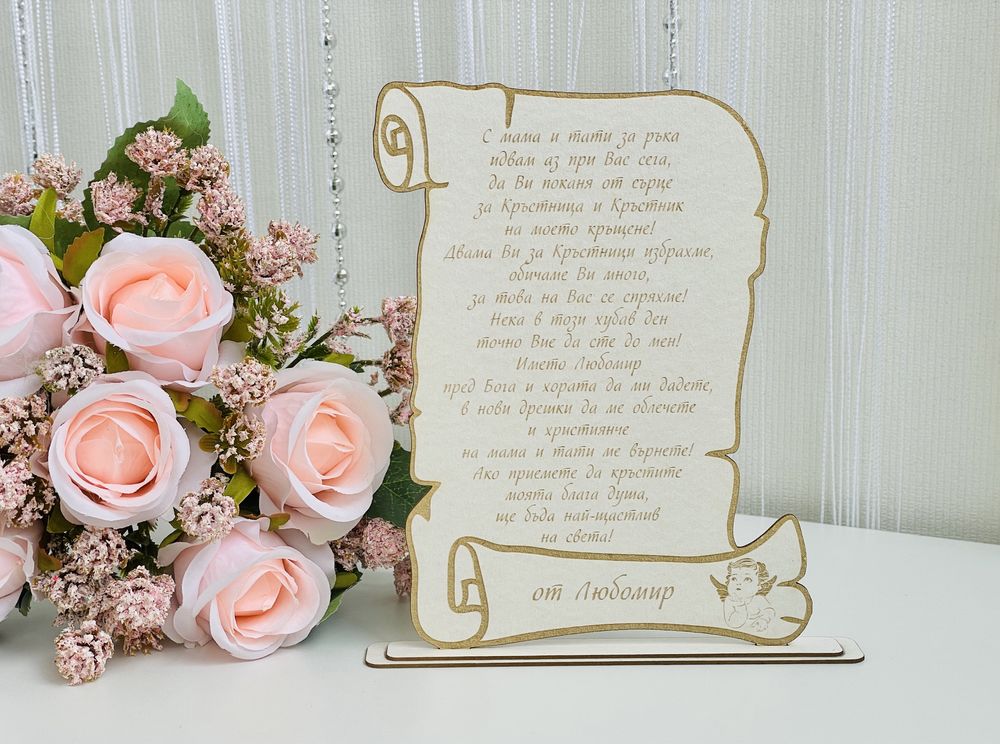 С мама и тати за ръка
идвам аз при Вас сега,
да Ви поканя от сърце
за Кръстница и Кръстник
на моето кръщене!
Двама Ви за Кръстници избрахме,
обичаме Ви много,
за това на Вас се спряхме!
Нека в този хубав ден
точно Вие да сте до мен!
Името Любомир
пред Бога и хората да ми дадете,
в нови дрешки да ме облечете
и християнче
на мама и тати ме върнете!
Ако приемете да кръстите
моята блага душа,
ще бъда най-щастлив
на света!
от Любомир